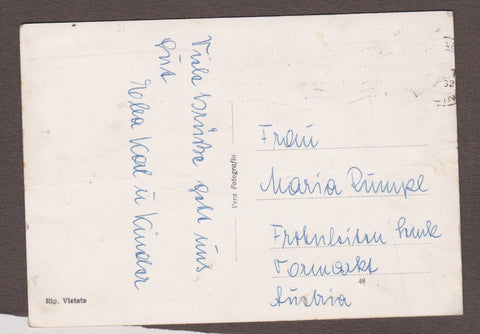 Viele Grüße geht uns
Gut
Elba Karl u Kinder
Vera Fotografia
Rip. Vietata
Frau
Maria Rumpl
Frohnleiten
Vormarkt
48
Austria